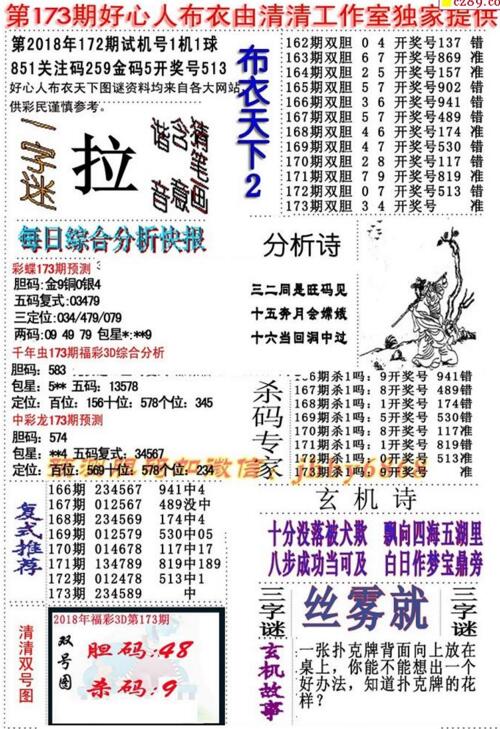 cz89.c
第173期好心人布衣由清清工作室独家提供
第2018年172期试机号1机1球
851关注码259金码5开奖号513
好心人布衣天下图谜资料均来自各大网站
供彩民谨慎参考。
一字迷
拉
谐含猜
音意笔画
布衣天下2
162期双胆 0 4 开奖号137 错
163期双胆 6 7 开奖号869 准
164期双胆 2 5 开奖号157 准
165期双胆 5 7 开奖号902 错
166期双胆 3 6 开奖号941 错
167期双胆 5 7 开奖号489 错
168期双胆 4 6 开奖号174 准
169期双胆 4 7 开奖号530 错
170期双胆 2 8 开奖号117 错
171期双胆 7 9 开奖号819 准
172期双胆 0 7 开奖号513 错
173期双胆 3 4 开奖号 准
每日综合分析快报
彩蝶173期预测
胆码:金9铜0银4
五码复式:03479
三定位:034/479/079
两码: 09 49 79 包星*:**9
千年虫173期福彩3D综合分析
胆码: 583
包星: 5** 五码: 13578
定位: 百位: 156十位: 578个位: 345
中彩龙173期预测
胆码: 574
包星: **4 五码复式: 34567
定位: 百位: 569十位: 578个位: 234
分析诗
三二同是旺码见
十五奔月会嫦娥
十六当回洞中过
杀码专家
166期杀1吗: 9开奖号 941错
167期杀1吗: 8开奖号 489错
168期杀1吗: 1开奖号 174错
169期杀1吗: 5开奖号 530错
170期杀1吗: 8开奖号 117准
171期杀1吗: 0开奖号 819准
172期杀1吗: 8开奖号 513准
173期杀1吗: 9开奖号 准
复式推荐
166期 234567 941中4
167期 012567 489没中
168期 234569 174中4
169期 012579 530中05
170期 014678 117中17
171期 134789 819中189
172期 012478 513中1
173期 234589 中
玄机诗
十分没落被犬欺 飘向四海五湖里
八步成功当可及 白日作梦宝鼎旁
三字谜
丝雾就
三字谜
清清双号图
2018年福彩3D第173期
双号图
胆码:48
杀码:9
玄机故事
一张扑克牌背面向上放在
桌上，你能不能想出一个
好办法，知道扑克牌的花
样?